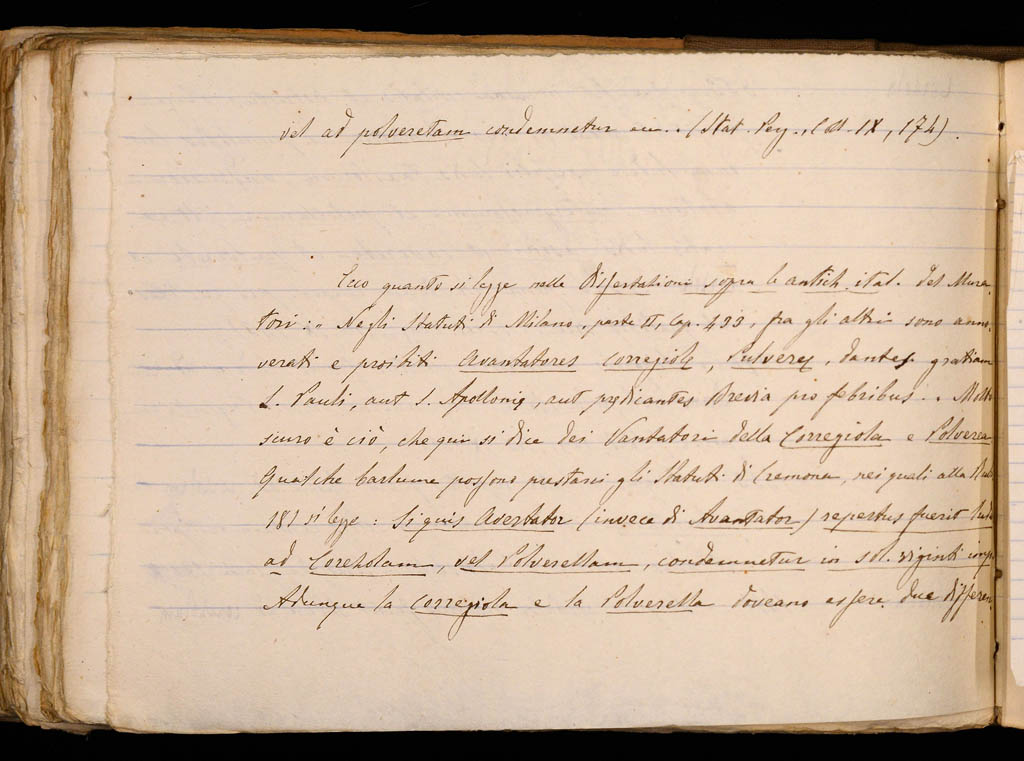 vel ad polveretam condemnetur ecc. (Stat. Reg., Cod. IX, 174).
Ecco quanto si legge nelle Dissertazioni sopra le antich. ital. del Mura-
tori: "Negli Statuti di Milano, parte II, Cap. 433, fra gli altri sono anno-
verati e proibiti Avantatores corregiolę, Pulverę, dantes gratiam
S. Pauli, aut S. Apollonię, aut prędicantes Brevia pro febribus. Molto
scuro è ciò, che qui si dice dei Vantatori della Corregiola e Polverea
Qualche barlume possono prestarci gli Statuti di Cremona, nei quali alla
181 si legge: Si quis Avertator (invece di Avantator) repertus fuerit
ad Coreholam, vel Polverellam, condemnetur in sol. viginti imp.
Adunque la Corregiola e la Polverella doveano essere due differen-